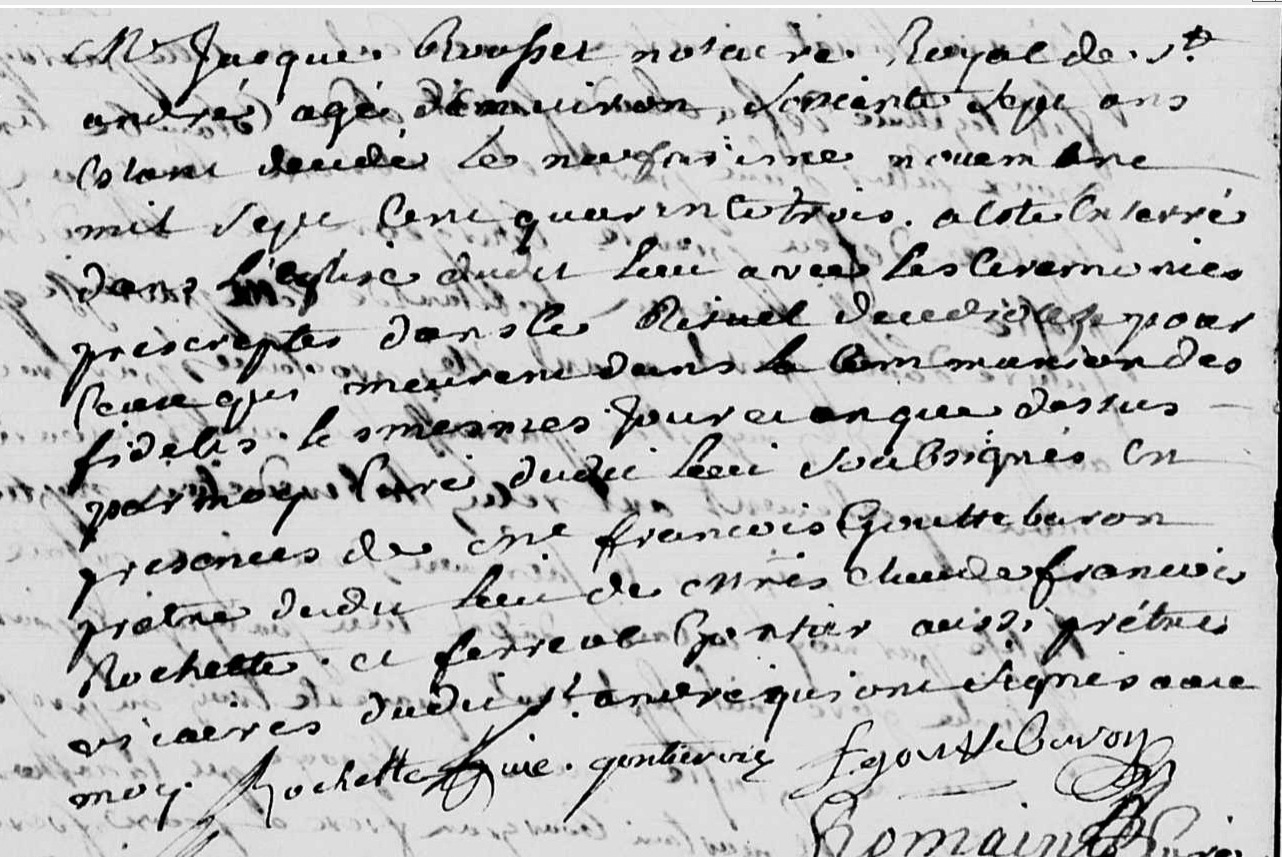 Mr Jacque Rousset notaire Royal de St
andré agé d'enuiron soixante sept ans
Estant decedé le neufusiesme nouembre
mil sept cent quarente trois. a esté Enterré
dans l'Eglise dudit lieu avec les Ceremonies
prescreptes dans le Rituel du diocèse pour
Ceux qui meurent dans la Communion des
fidelles. les mesmes Jour et an que dessus
par moy Curé dudit lieu soubsignés En
presences de Mre francois Gouttebaron
pretre dudit lieu de Mres Claude francois
Rochette. et ferreol Gontier aussi prétres
vicaires dudit St. andre qui ont signés avec
moy. Rochette vicaire. gontier vic fgouttebaron
Romain Curé